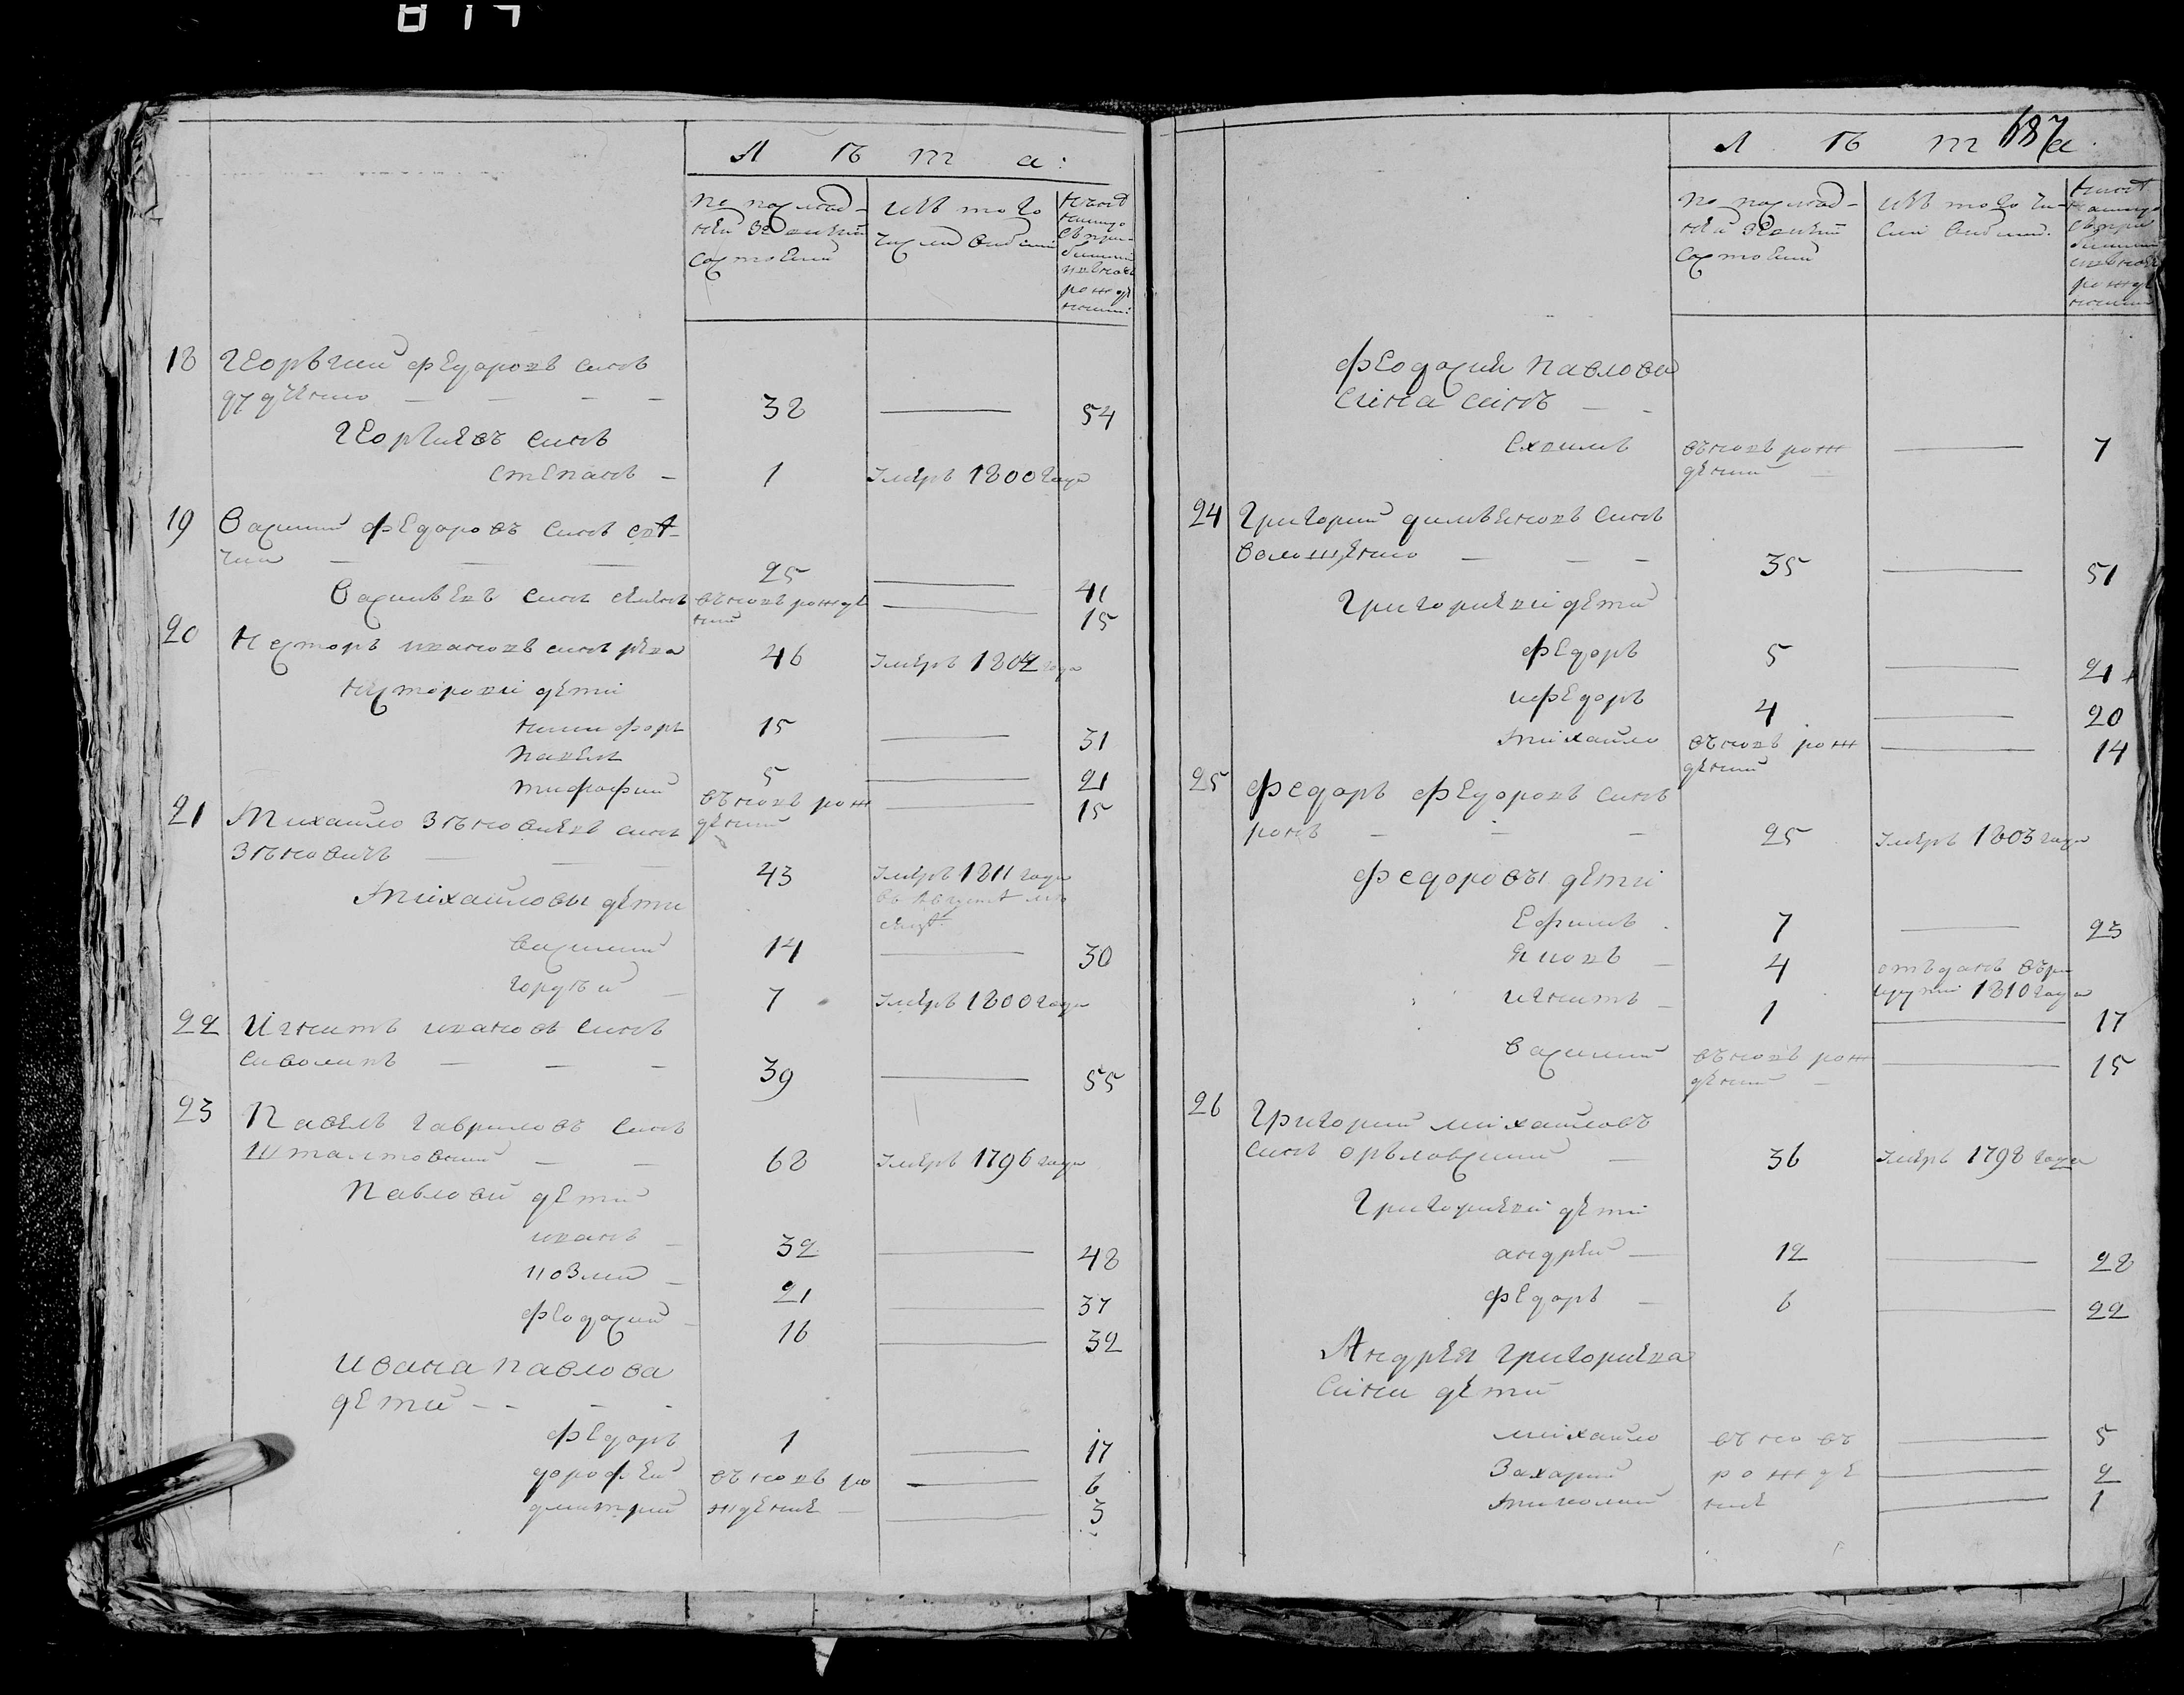 Л Ѣ т а:
по послѣд-
ней ревизіи
состояли
изъ того
числа выбыли
нынѣ
на лицо
съ при-
былыми
и вновь
рожде
нными
18 Георьгий Федоровъ сынъ
дудченко — 38 — 54
Георгиевъ сынъ
степанъ — 1 Умеръ 1800 года
19 Василий Федоровъ сынъ
25 — 41
Васильевъ сынъ вновь рожде
ний — 15
20 Несторъ ивановъ сынъ рева 46 Умеръ 1804 года
несторовы дети
никифоръ 15 — 31
павелъ 5 — 21
тимофий вновь рож
дений — 15
21 Михайло Зѣновиевъ сынъ
Зѣновичъ — 43 Умеръ 1811 года
въ августѣ мѣ
сяцѣ
Михайловы дети
василий 14 — 30
гордѣй — 7 Умеръ 1800 года
22 Игнатъ ивановъ сынъ
сиволапъ — 39 — 55
23 Павелъ гавриловъ сынъ
68 Умеръ 1796 года
Павловы дети
иванъ — 32 — 48
козма — 21 — 37
феодосий — 16 — 32
Ивана павлова
дети — —
федоръ 1 — 17
дорофей вновь ро — 6
дмитрий ждение — 3
687
Л Ѣ т а.
по послѣд-
ней ревизіи
состояли
изъ того чи-
сла выбыли.
нынѣ
на лицо
съ при
былыми
и вновь
рожде
нными
феодосия павлова
сина синъ — —
якимъ вновь рож
дений — 7
24 Григорий демьяновъ сынъ
волощенко — 35 — 51
Григориеви дети
федоръ 5 — 21
ифедоръ 4 — 20
михайло вновь рож
дений — 14
25 Федоръ федоровъ сынъ
25 Умеръ 1803 года
Федоровы дети
Ефимъ 7 — 23
яковъ — 4 отъданъ въре
круты 1810 года
игнатъ — 1 — 17
василий вновь рож
дений — 15
26 Григорий михайловъ
сынъ орѣловский — 36 Умеръ 1798 года
Григориеви дети
андрей — 12 — 28
федоръ — 6 — 22
Андрея григориева
сина дети
михайло вновь — 5
Захарий рожде — 2
николай ние — 1